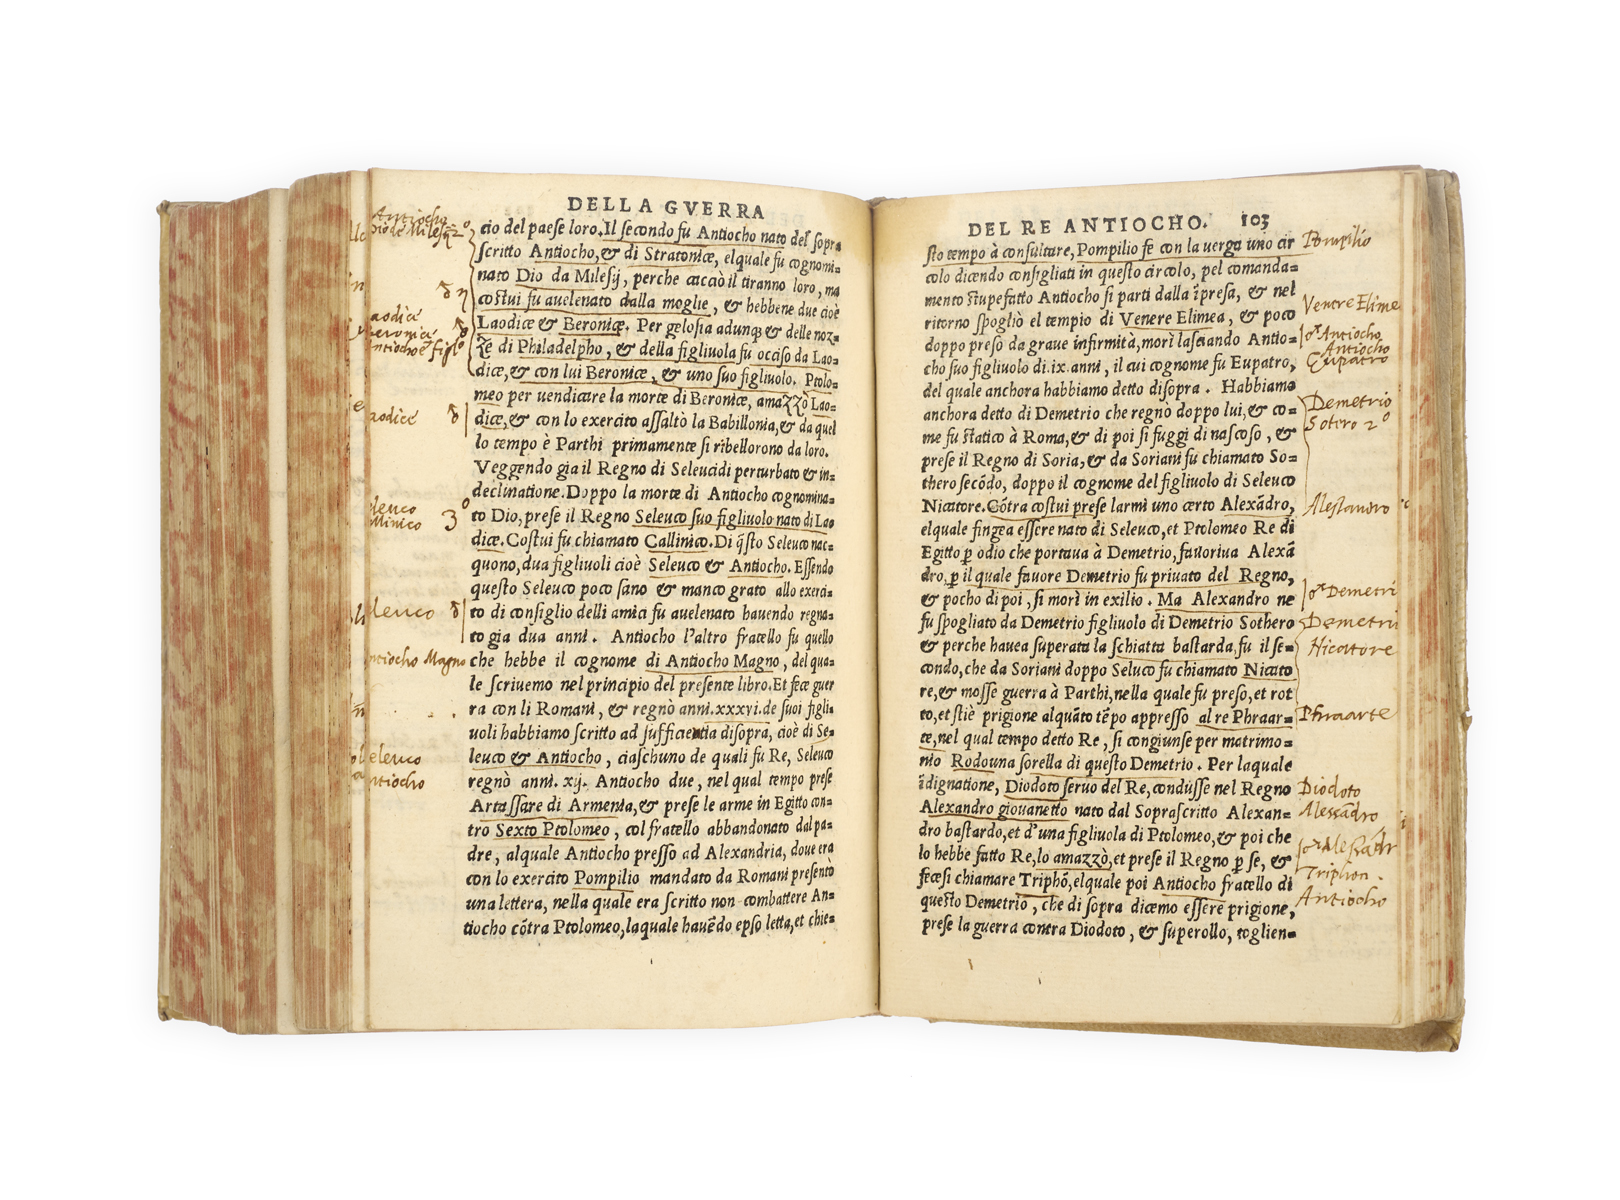 DELLA GVERRA
cio del paese loro. Il secondo fu Antiocho nato del sopra
scritto Antiocho, & di Stratonicæ, elquale fu cognomi=
nato Dio da Milesij, perche cacciò il tiranno loro, ma
costui fu auelenato dalla moglie, & hebbene due cioè
Laodicæ & Beronicæ. Per gelosia adunq; & delle noz=
ze di Philadelpho, & della figliuola fu occiso da Lao=
dicæ, & con lui Beronicæ, & uno suo figliuolo. Ptolo=
meo per uendicare la morte di Beronicæ, amazzò Lao=
dicæ, & con lo exercito assaltò la Babillonia, & da quel
lo tempo è Parthi primamente si ribellorono da loro.
Veggendo gia il Regno di Seleucidi perturbato & in=
declinatione. Doppo la morte di Antiocho cognomina=
to Dio, prese il Regno Seleuco suo figliuolo nato di Lao
dicæ. Costui fu chiamato Callinico. Di q̃sto Seleuco nac=
quono, dua figliuoli cioè Seleuco & Antiocho. Essendo
questo Seleuco poco sano & manco grato allo exerci=
to di consiglio delli amici fu auelenato hauendo regna=
to gia dua anni. Antiocho l'altro fratello fu quello
che hebbe il cognome di Antiocho Magno, del qua=
le scriuemo nel principio del presente libro. Et fece guer
ra con li Romani, & regnò anni. xxxvi. de suoi figli=
uoli habbiamo scritto ad sufficientia disopra, cioè di Se=
leuco & Antiocho, ciaschuno de quali fu Re, Seleuco
regnò anni. xij. Antiocho due, nel qual tempo prese
Artassare di Armenia, & prese le arme in Egitto con=
tro Sexto Ptolomeo, col fratello abbandonato dal pa=
dre, alquale Antiocho presso ad Alexandria, doue era
con lo exercito Pompilio mandato da Romani presentò
una lettera, nella quale era scritto non combattere An=
tiocho cõtra Ptolomeo, laquale hauẽdo epso letta, et chie=
Antiocho
dio de Milesij 2º
Laodicé
Beronicé
Antiocho é figlº
Laodicé
Seleuco
Callinico 3º
Seleuco
Antiocho Magno
Seleuco
Antiocho
DEL RE ANTIOCHO. 103
sto tempo à consultare, Pompilio fe con la uerga uno cir
colo dicendo consigliati in questo circolo, pel comanda=
mento stupefatto Antiocho si parti dalla ĩpresa, & nel
ritorno spogliò el tempio di Venere Elimea, & poco
doppo preso da graue infirmità, morì lasciando Antio=
cho suo figliuolo di. ix. anni, il cui cognome fu Eupatro,
del quale anchora habbiamo detto disopra. Habbiamo
anchora detto di Demetrio che regnò doppo lui, & co=
me fu statico à Roma, & di poi si fuggi di nascoso, &
prese il Regno di Soria, & da Soriani fu chiamato So=
thero secõdo, doppo il cognome del figliuolo di Seleuco
Nicatore. Cõtra costui prese larmi uno certo Alexãdro,
elquale fingea essere nato di Seleuco, et Ptolomeo Re di
Egitto p̱ odio che portaua à Demetrio, fauoriua Alexã
dro, p̱ il quale fauore Demetrio fu priuato del Regno,
& pocho di poi, si morì in exilio. Ma Alexandro ne
fu spogliato da Demetrio figliuolo di Demetrio Sothero
& perche hauea superata la schiatta bastarda, fu il se=
condo, che da Soriani doppo Seluco fu chiamato Nicato
re, & mosse guerra à Parthi, nella quale fu preso, et rot
to, et stiè prigione alquãto tẽpo appresso al re Phraar=
te, nel qual tempo detto Re, si congiunse per matrimo=
nio Rodouna sorella di questo Demetrio. Per laquale
ĩdignatione, Diodoto seruo del Re, condusse nel Regno
Alexandro giouanetto nato dal Soprascritto Alexan=
dro bastardo, et d'una figliuola di Ptolomeo, & poi che
lo hebbe fatto Re, lo amazzò, et prese il Regno p̱ se, &
fecesi chiamare Triphõ, elquale poi Antiocho fratello di
questo Demetrio, che di sopra dicemo essere prigione,
prese la guerra contra Diodoto, & superollo, toglien=
Pompilio
Venere Elime
Antiocho
Antiocho
Eupatro
Demetrio
Sotero 2º
Alessandro
Demetri
Demetrii
Nicatore
Phraarte
Diodoto
Alessãdro
Triphon.
Antiocho